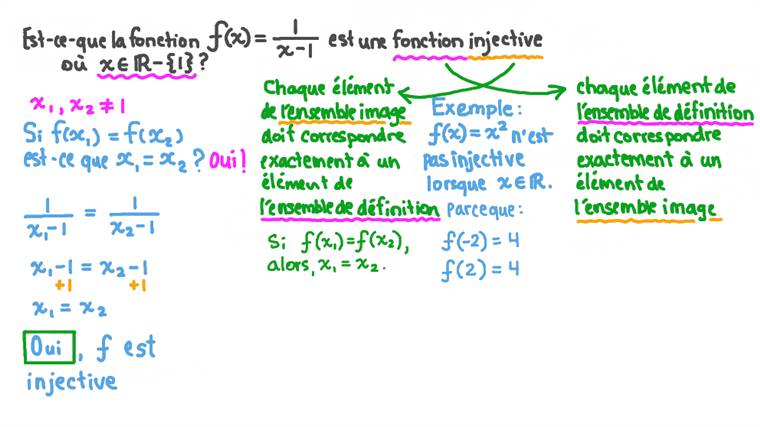 Est-ce-que la fonction f(x) = 1/(x-1) est une fonction injective
où x ∈ ℝ - {1} ?
x₁, x₂ ≠ 1
Si f(x₁) = f(x₂)
est-ce que x₁ = x₂ ? Oui !
1/(x₁-1) = 1/(x₂-1)
x₁-1 = x₂-1
+1 +1
x₁ = x₂
Oui, f est
injective
Chaque élément
de l'ensemble image
doit correspondre
exactement à un
élément de
l'ensemble de définition
Si f(x₁) = f(x₂),
alors, x₁ = x₂.
Exemple :
f(x) = x² n'est
pas injective
lorsque x ∈ ℝ.
Parce que :
f(-2) = 4
f(2) = 4
chaque élément de
l'ensemble de définition
doit correspondre
exactement à un
élément de
l'ensemble image